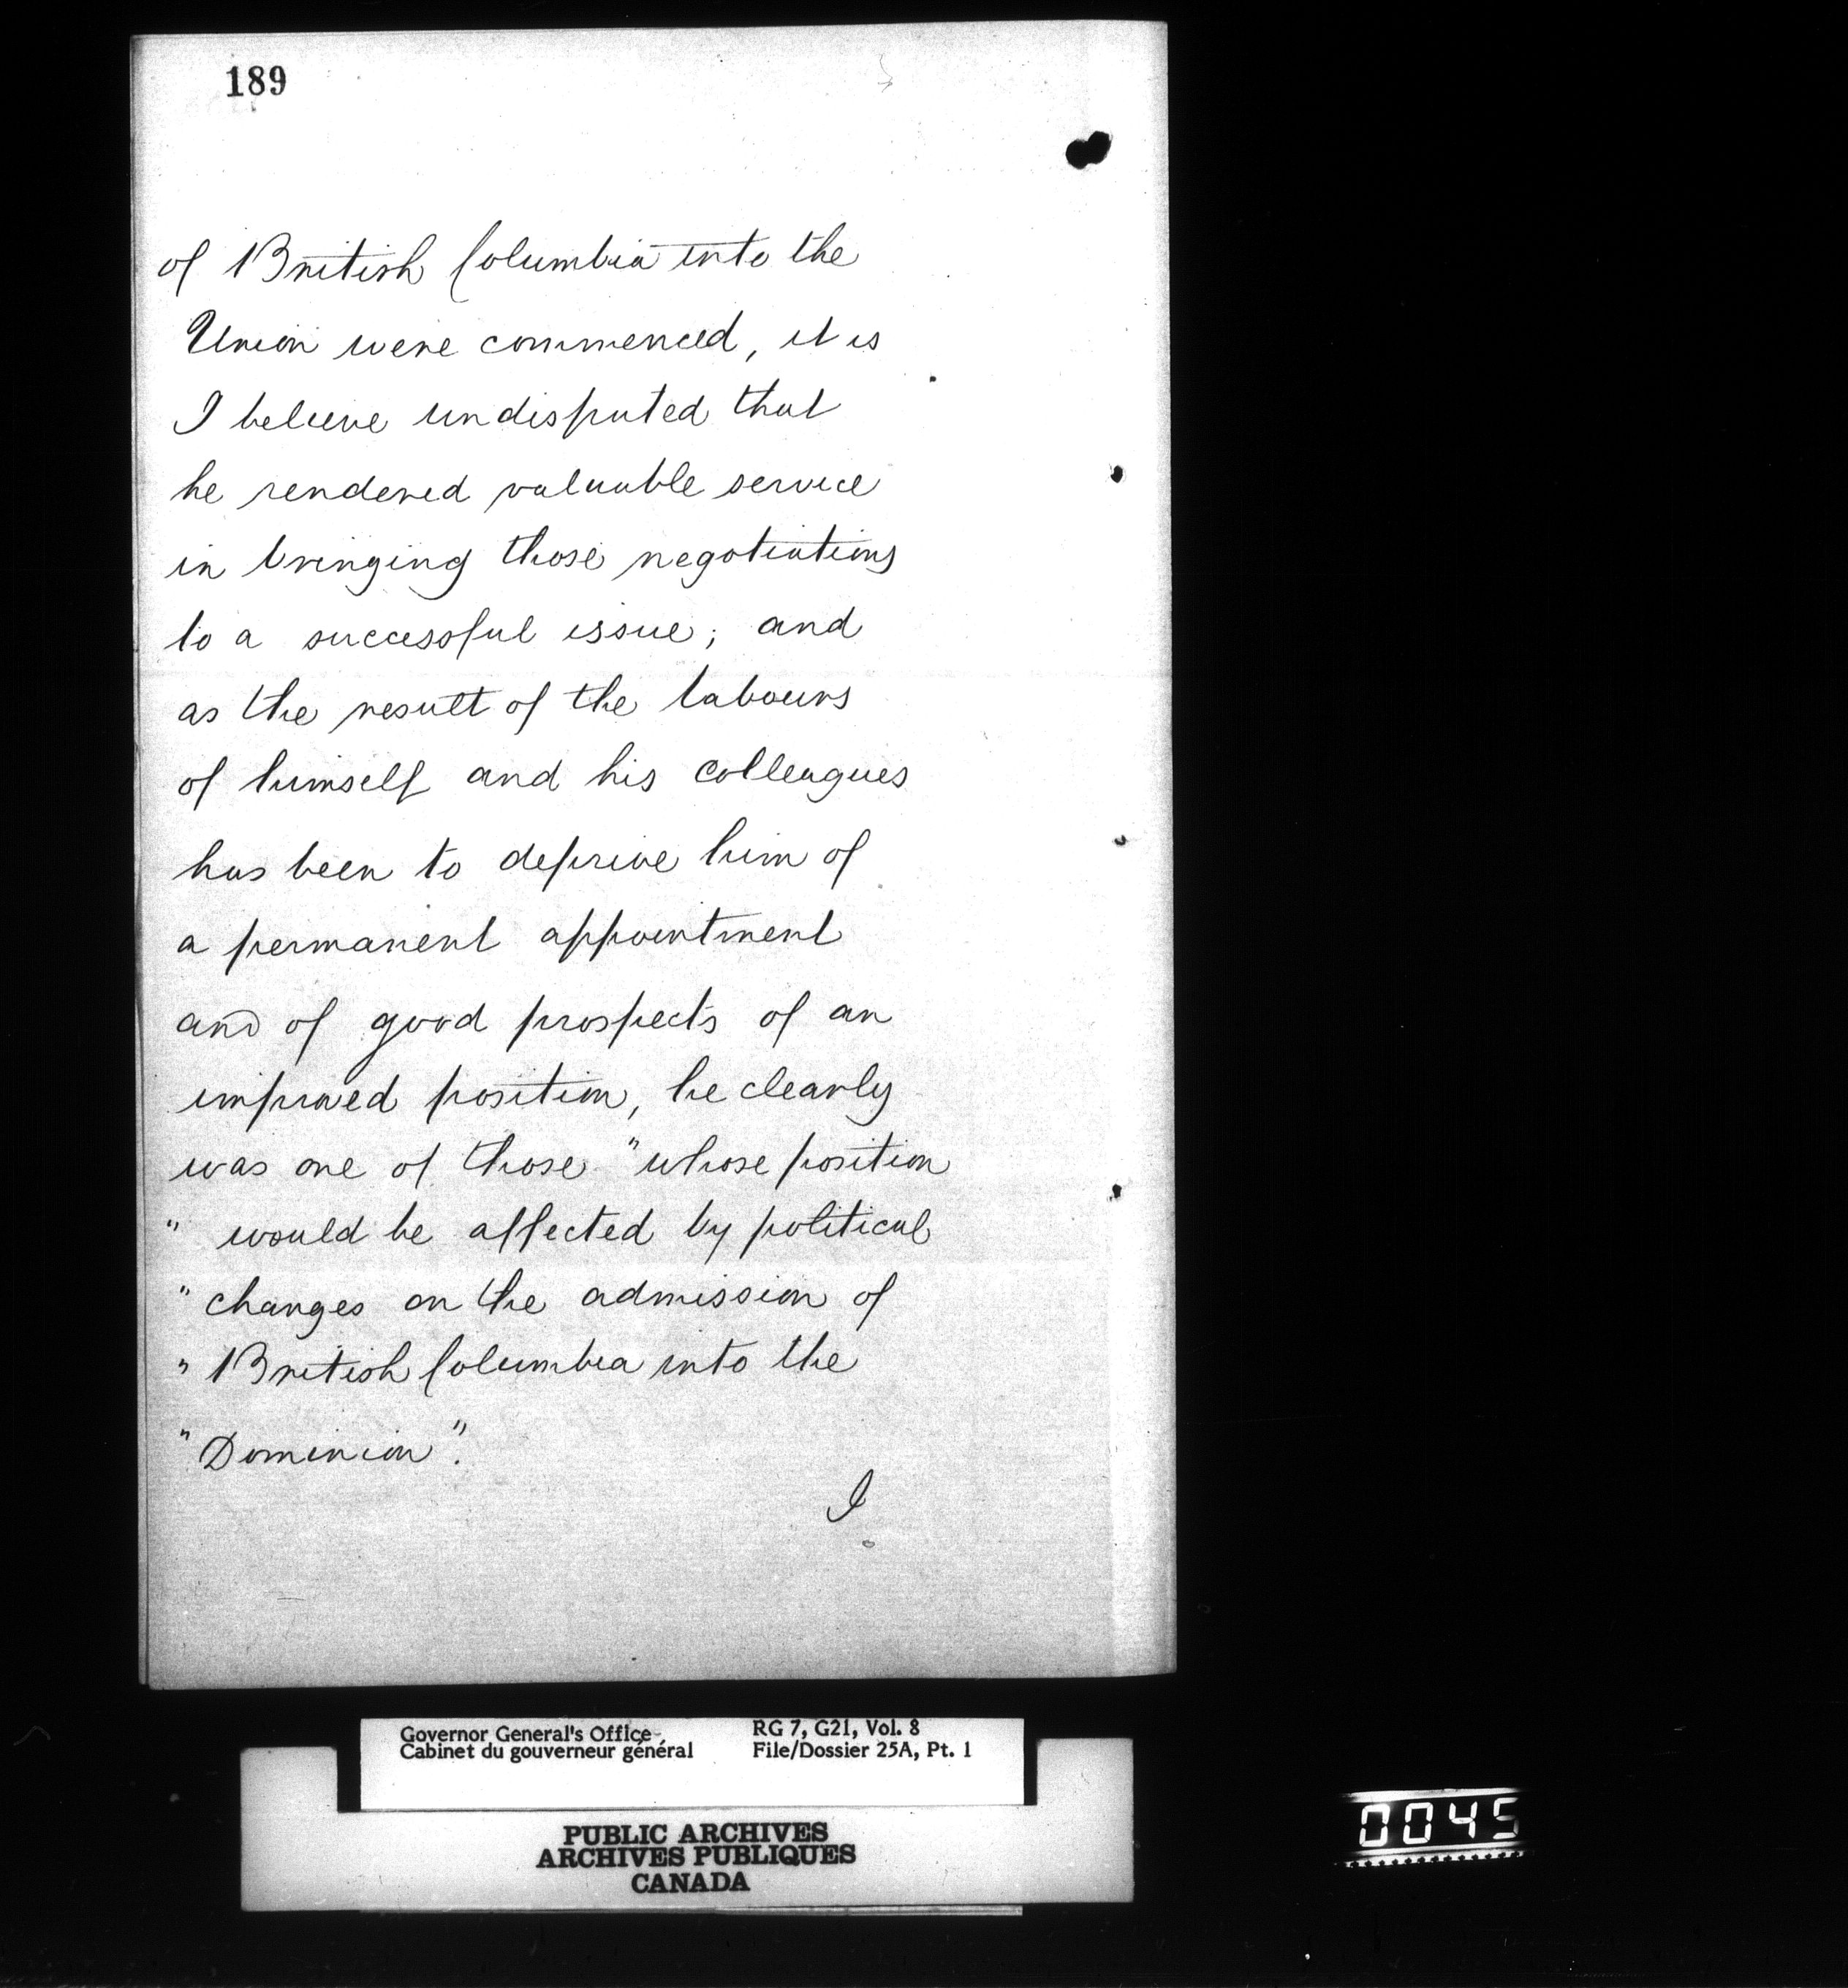 189
of British Columbia into the
Union were commenced, it is
I believe undisputed that
he rendered valuable service
in bringing those negotiations
to a successful issue; and
as the result of the labours
of himself and his colleagues
has been to deprive him of
a permanent appointment
and of good prospects of an
improved position, he clearly
was one of those "whose position
" would be affected by political
" changes on the admission of
" British Columbia into the
" Dominion".
I
Governor General's Office RG 7, G21, Vol. 8
Cabinet du gouverneur général File/Dossier 25A, Pt. 1
PUBLIC ARCHIVES
ARCHIVES PUBLIQUES
CANADA
0045